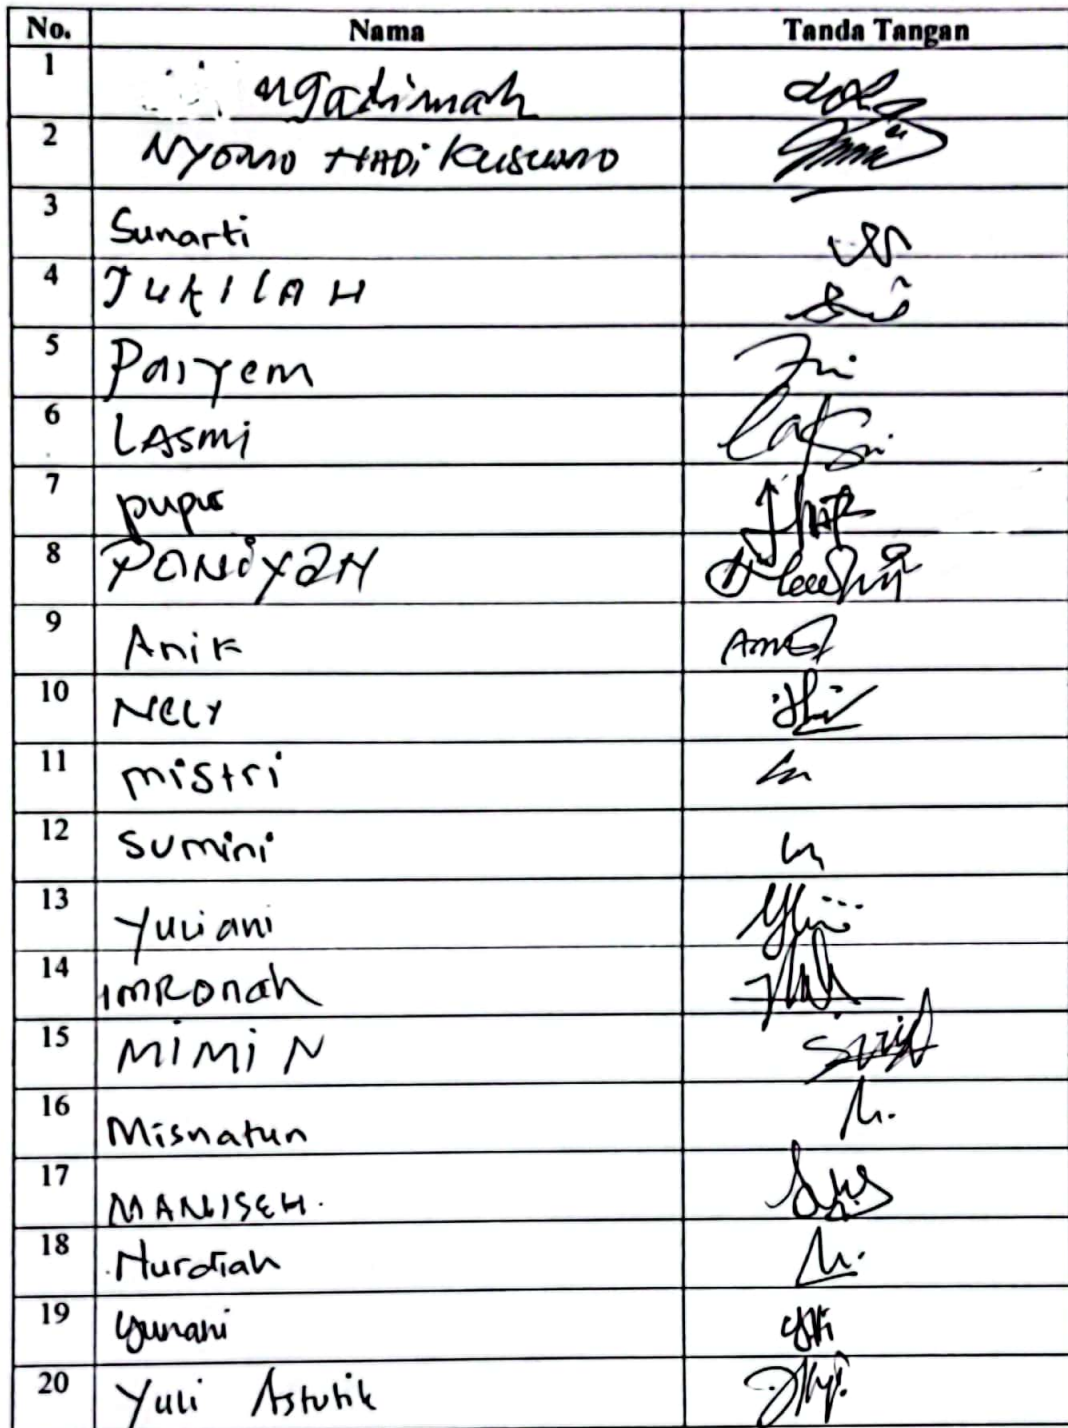 No. Nama Tanda Tangan
1 ngadimah
2 NYOMO HADI KUSUMO
3 Sunarti
4 JUKILAH
5 Paiyem
6 LASMI
7 pupus
8 PANIYAH
9 Anik
10 NELY
11 mistri
12 sumini
13 Yuliani
14 IMRONAH
15 MIMIN
16 Misnatun
17 MANISEH.
18 Nurdiah
19 yunani
20 Yuli Astutik